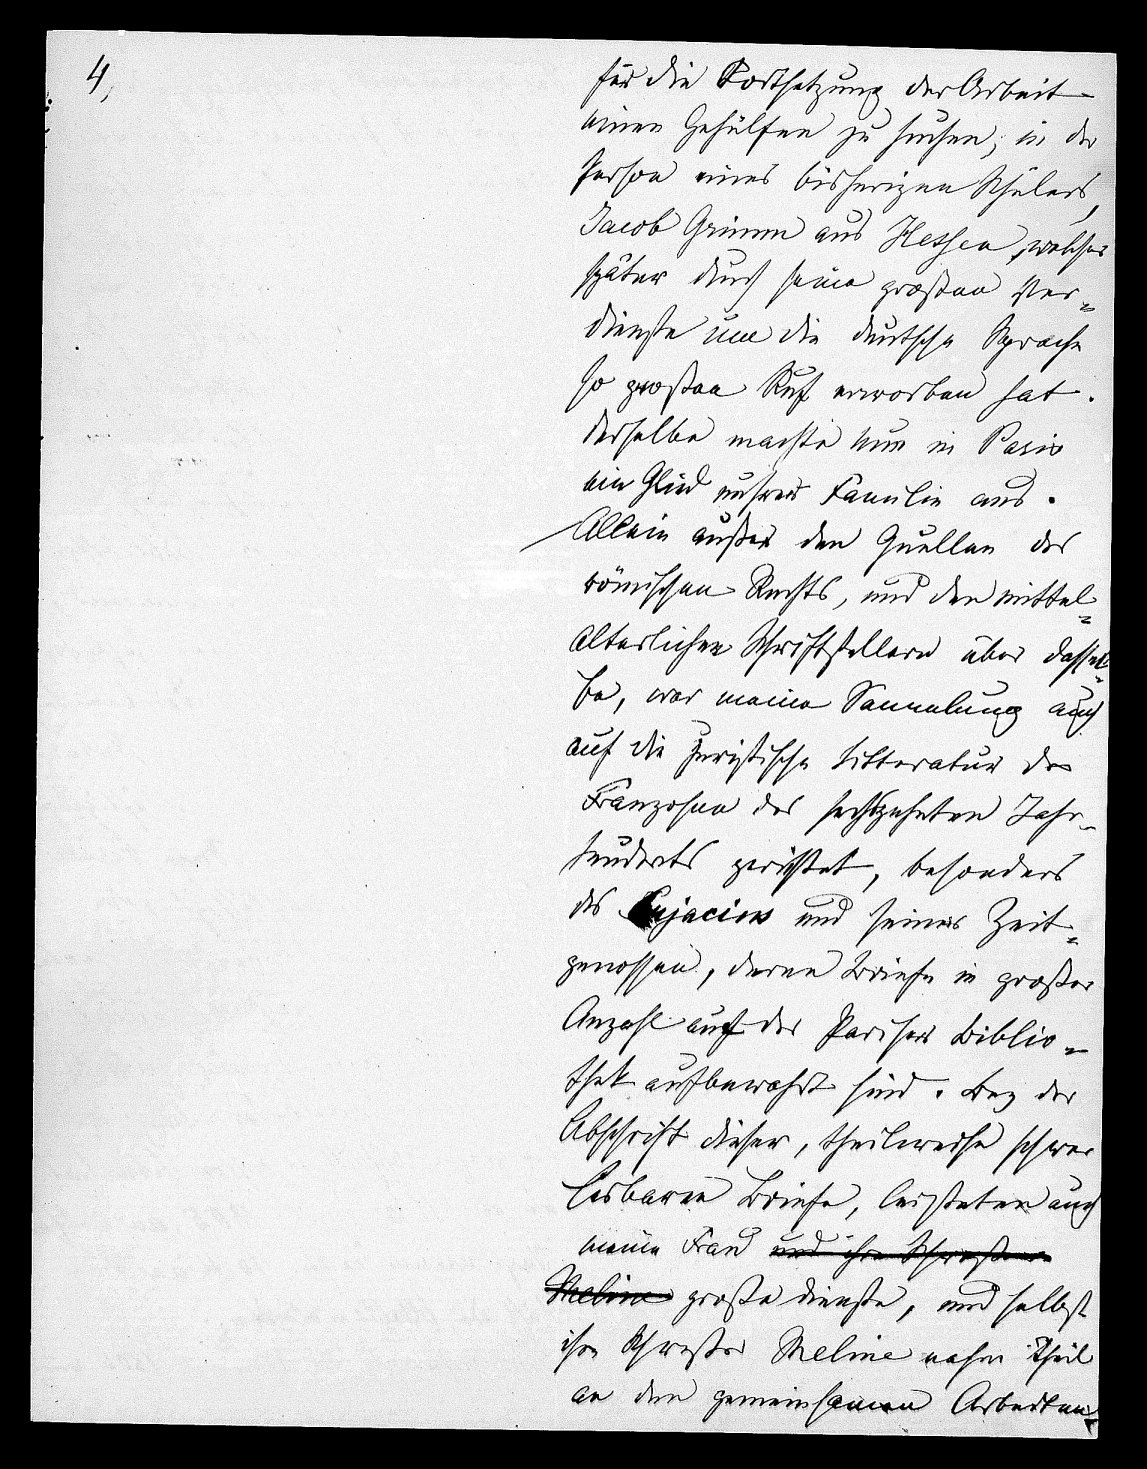 4,
für die Fortsetzung der Arbeit
einen Gehülfen zu suchen, in der
Person eines bisherigen Schülers,
Jacob Grimm aus Hessen, welcher
später durch seine großen Ver-
dienste um die deutsche Sprache
so großen Ruf erworben hat.
Derselbe machte nun in Paris
ein Glied unsrer Familie aus.
Allein außer den Quellen des
römischen Rechts, und den mittel-
alterlichen Schriftstellern über dassel-
be, war meine Sammlung auch
auf die juristische Litteratur der
Franzosen des sechszehnten Jahr-
hunderts gerichtet, besonders
des Cujacius und seiner Zeit-
genossen, deren Briefe in großer
Anzahl auf der Pariser Biblio-
thek aufbewahrt sind. Bey der
Abschrift dieser, theilweise schwer
lesbaren Briefe, leisteten auch
meine Frau und ihre Schwester
Meline große Dienste, und selbst
ihre Schwester Meline nahm Theil
an den gemeinsamen Arbeiten.